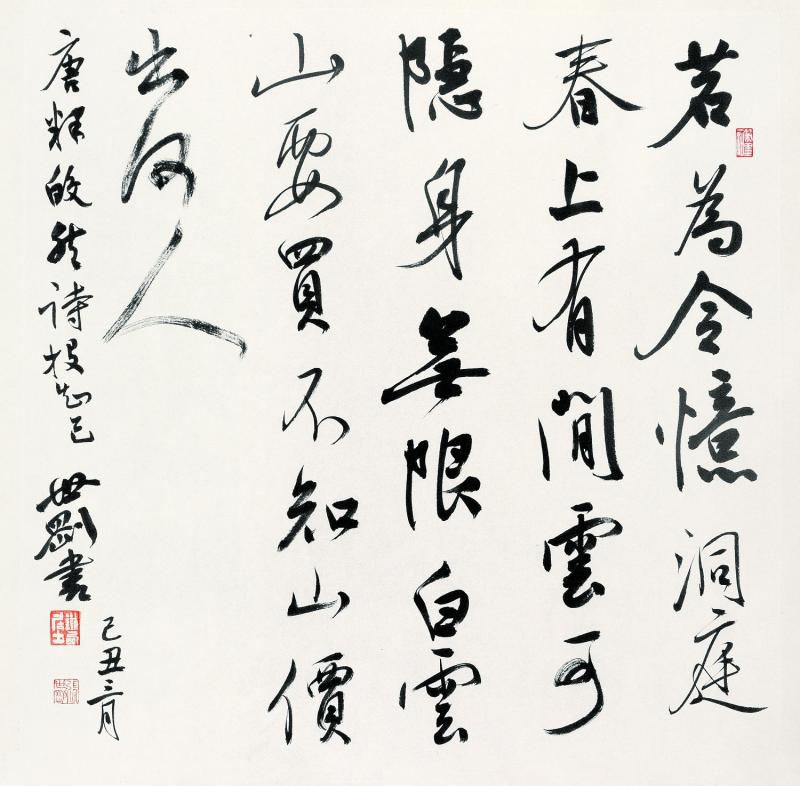 若為令憶洞庭
春上有閒雲可
隱身無限白雲
山要買不知山價
出何人
唐釋皎然詩投知己
世剛書
己丑三月